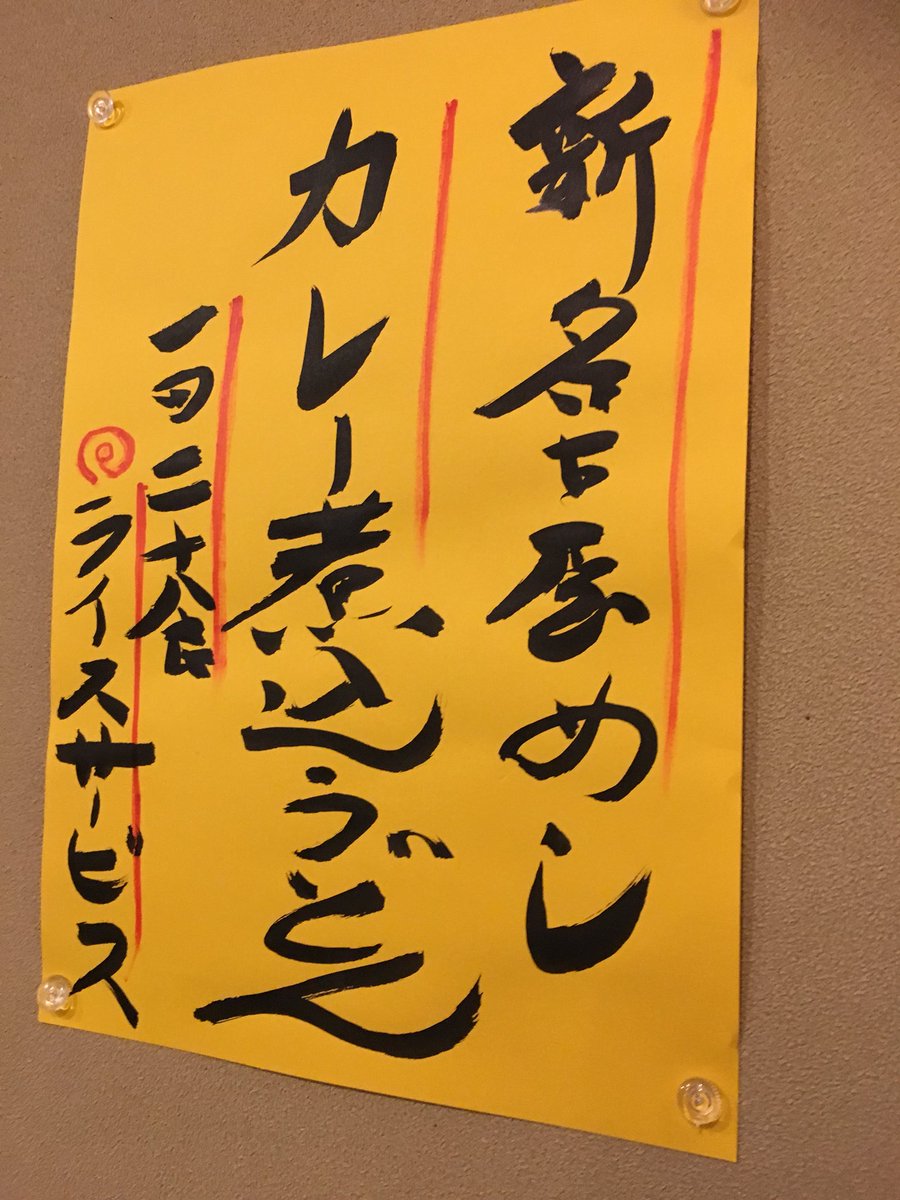 新名古屋めし
カレー煮込うどん
一日二十食
ライスサービス